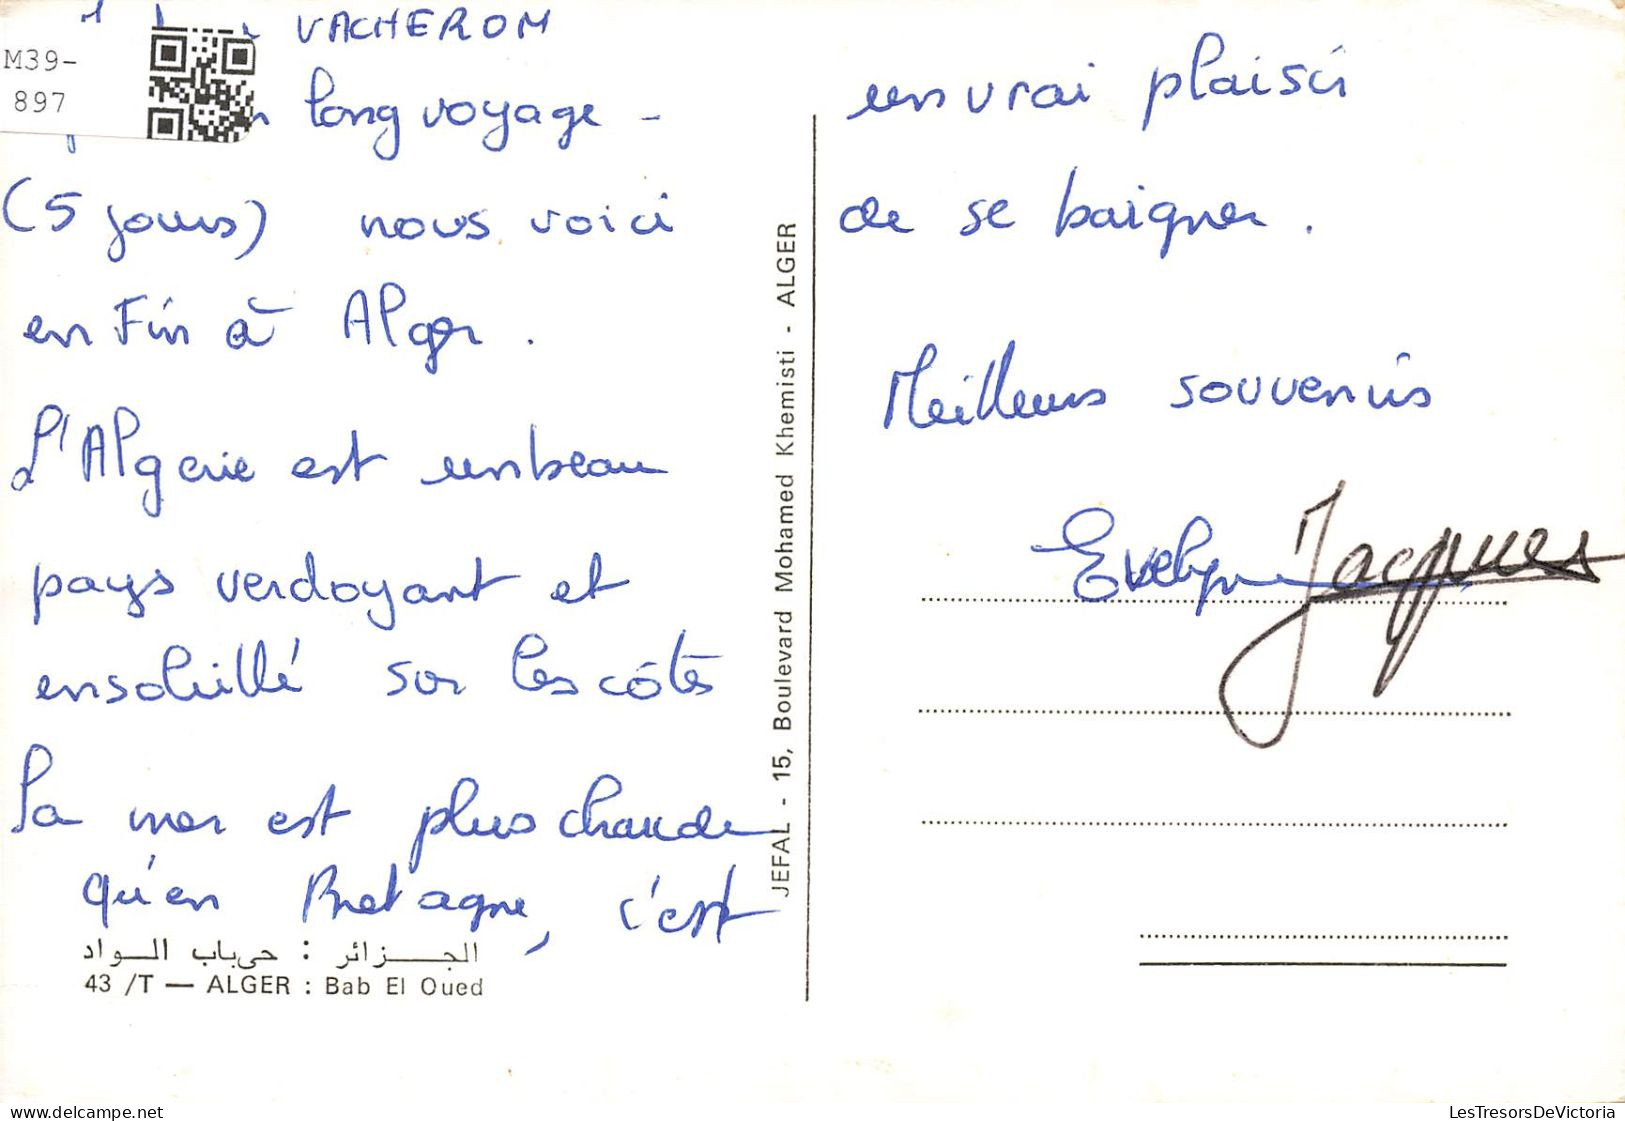 VACHEROM
M39-
897
long voyage -
(5 jours) nous voici
en Fin à Alger .
L'Algerie est un beau
pays verdoyant et
ensoleillé sur les côtes
la mer est plus chaude
qu'en Bretagne, c'est
الجزائر : حي باب الواد
43 /T — ALGER : Bab El Oued
JEFAL - 15, Boulevard Mohamed Khemisti - ALGER
un vrai plaisir
de se baigner .
Meilleurs souvenirs
Evelyne Jacques
delcampe.net
LesTresorsDeVictoria